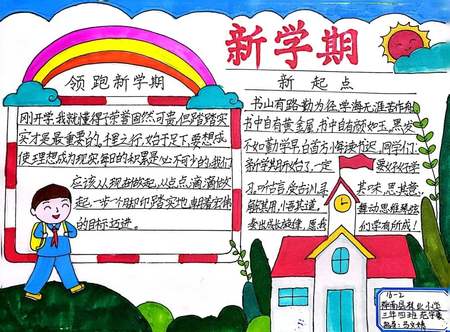 新学期
领跑新学期
刚开学,我就懂得了荣誉固然可贵,但踏踏实
实才是最重要的,千里之行,始于足下,要想成
使理想成为现实,每日的积累是必不可少的,我们
应该从现在做起,从点点滴滴做
起,一步一个脚印踏实地,朝着实体
的目标迈进。
新起点
书山有路勤为径,学海无涯苦作舟
书中自有黄金屋,书中自有颜如玉,黑发
不知勤学早,白首方悔读书迟,同学们:
新学期开始了,一定
要好好学
孔听古言,皮古训,寻
其味,思其意,
解其用,小悟其道,
舞动思维琴弦
奏出成长旋律,愿我
们学有所成!
16-2
林业小学
三年四班